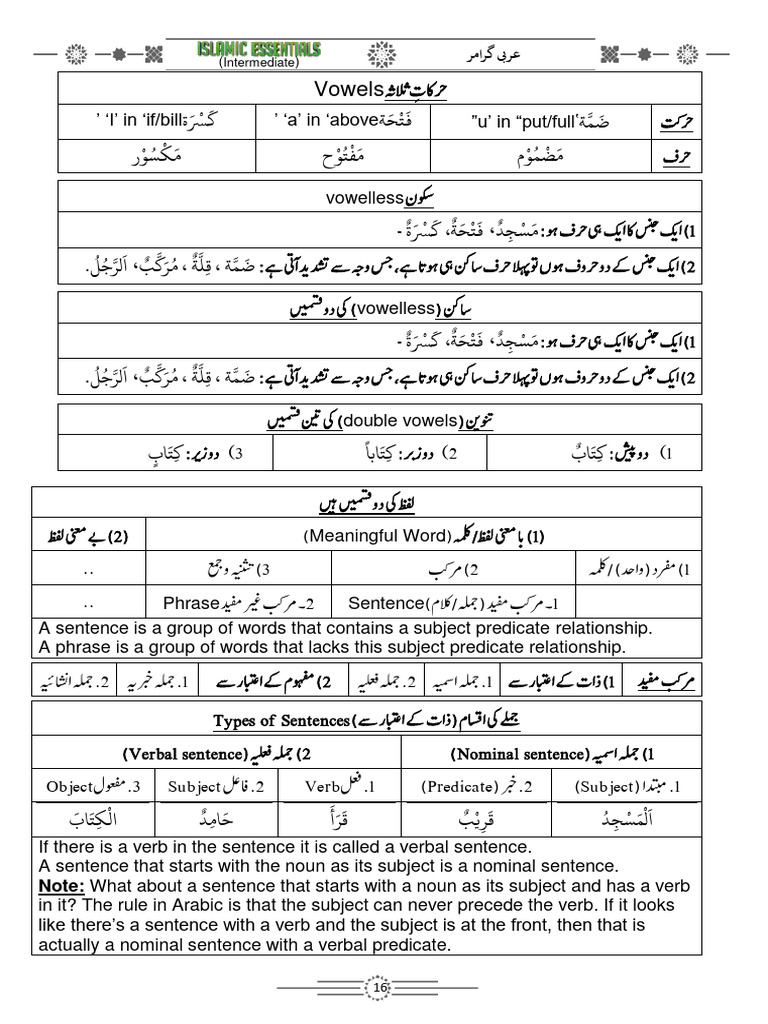 ISLAMIC ESSENTIALS
(Intermediate)
عربی گرامر
حرکاتِ ثلاثہ Vowels
حرکت
ضَمَّة ‘u’ in “put/full”
فَتْحَة ‘a’ in ‘above’
كَسْرَة ‘I’ in ‘if/bill’
حرف
مَضْمُوْم
مَفْتُوْح
مَكْسُوْر
سکون vowelless
1) ایک جنس کا ایک ہی حرف ہو: مَسْجِدٌ، فَتْحَةٌ، كَسْرَةٌ -
2) ایک جنس کے دو حروف ہوں تو پہلا حرف ساکن ہی ہوتا ہے، جس وجہ سے تشدید آتی ہے: ضَمَّة ، قِلَّةٌ ، مُرَكَّبٌ، اَلرَّجُلُ.
ساکن (vowelless) کی دو قسمیں
1) ایک جنس کا ایک ہی حرف ہو: مَسْجِدٌ، فَتْحَةٌ، كَسْرَةٌ -
2) ایک جنس کے دو حروف ہوں تو پہلا حرف ساکن ہی ہوتا ہے، جس وجہ سے تشدید آتی ہے: ضَمَّة ، قِلَّةٌ ، مُرَكَّبٌ، اَلرَّجُلُ.
تنوین (double vowels) کی تین قسمیں
1) دو پیش: كِتَابٌ
2) دو زبر: كِتَاباً
3) دو زیر: كِتَابٍ
لفظ کی دو قسمیں ہیں
(1) با معنی لفظ/کلمہ (Meaningful Word)
(2) بے معنی لفظ
1) مفرد (واحد) / کلمہ
2) مرکب
3) تثنیہ و جمع
..
1۔ مرکب مفید (جملہ/کلام) Sentence
2۔ مرکب غیر مفید Phrase
..
A sentence is a group of words that contains a subject predicate relationship.
A phrase is a group of words that lacks this subject predicate relationship.
مرکب مفید
1) ذات کے اعتبار سے
1. جملہ اسمیہ
2. جملہ فعلیہ
2) مفہوم کے اعتبار سے
1. جملہ خبریہ
2. جملہ انشائیہ
جملے کی اقسام (ذات کے اعتبار سے) Types of Sentences
1) جملہ اسمیہ (Nominal sentence)
2) جملہ فعلیہ (Verbal sentence)
1. مبتدا (Subject)
2. خبر (Predicate)
1. فعل Verb
2. فاعل Subject
3. مفعول Object
اَلْمَسْجِدُ
قَرِيْبٌ
قَرَأَ
حَامِدٌ
الْكِتَابَ
If there is a verb in the sentence it is called a verbal sentence.
A sentence that starts with the noun as its subject is a nominal sentence.
Note: What about a sentence that starts with a noun as its subject and has a verb
in it? The rule in Arabic is that the subject can never precede the verb. If it looks
like there’s a sentence with a verb and the subject is at the front, then that is
actually a nominal sentence with a verbal predicate.
16